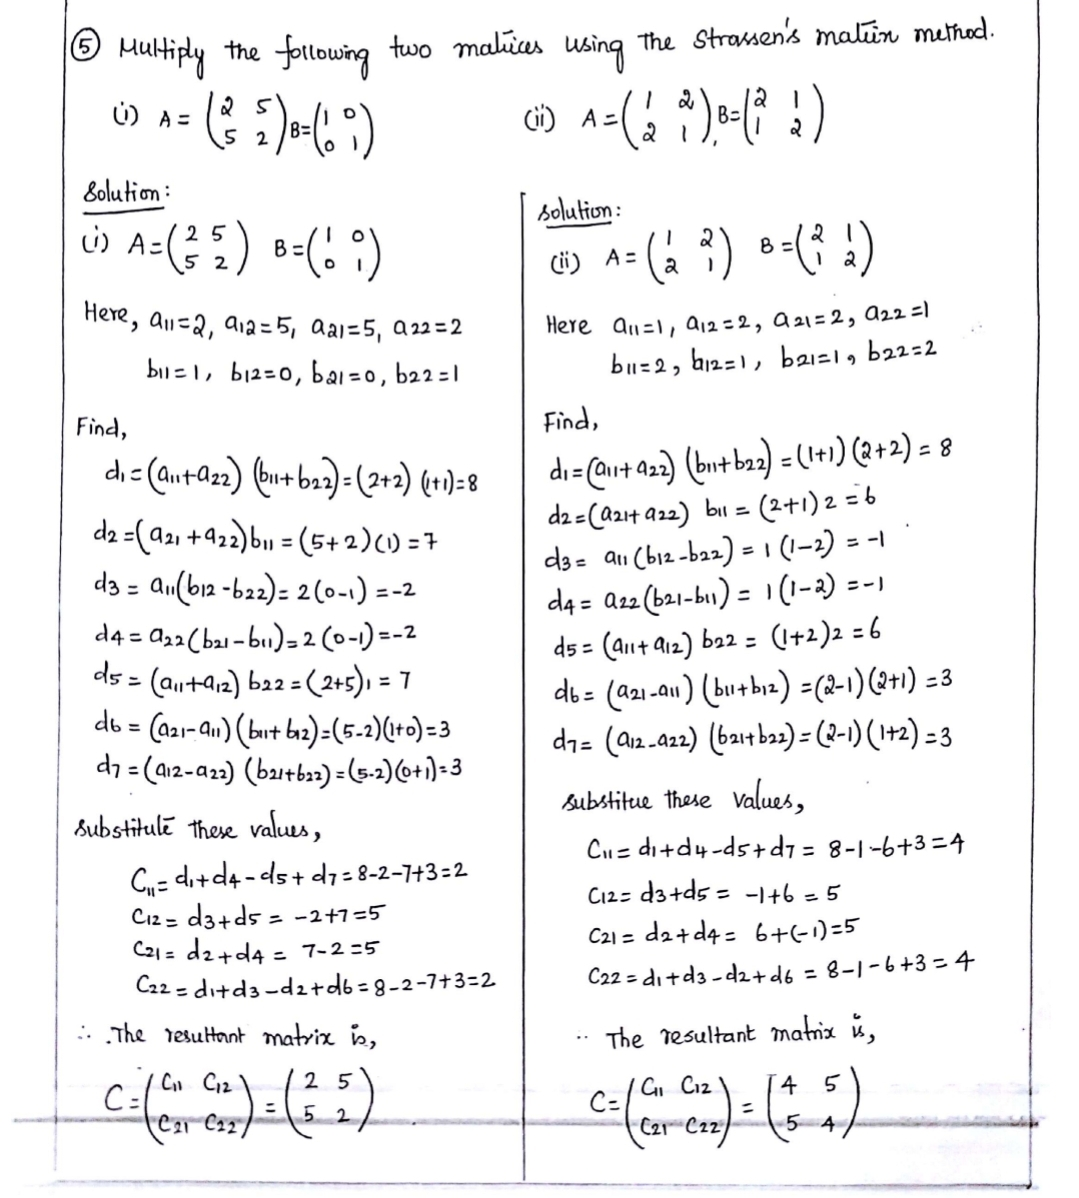 ⑤ Multiply the following two matrices using the Strassen's matrix method.
(i) A = (2 5
5 2) B=(1 0
0 1)
(ii) A = (1 2
2 1), B=(2 1
1 2)
Solution:
(i) A=(2 5
5 2) B=(1 0
0 1)
Here, a11=2, a12=5, a21=5, a22=2
b11=1, b12=0, b21=0, b22=1
Find,
d1=(a11+a22) (b11+b22)=(2+2) (1+1)=8
d2=(a21+a22)b11=(5+2)(1)=7
d3 = a11(b12-b22)=2(0-1)=-2
d4=a22(b21-b11)=2(0-1)=-2
d5=(a11+a12) b22=(2+5)1=7
d6=(a21-a11)(b11+b12)=(5-2)(1+0)=3
d7=(a12-a22) (b21+b22)=(5-2)(0+1)=3
Substitute these values,
C11=d1+d4-d5+d7=8-2-7+3=2
C12=d3+d5=-2+7=5
C21=d2+d4=7-2=5
C22=d1+d3-d2+d6=8-2-7+3=2
∴ The resultant matrix is,
C=(C11 C12
C21 C22)=(2 5
5 2)
solution:
(ii) A=(1 2
2 1) B=(2 1
1 2)
Here a11=1, a12=2, a21=2, a22=1
b11=2, b12=1, b21=1, b22=2
Find,
d1=(a11+a22) (b11+b22)=(1+1)(2+2)=8
d2=(a21+a22) b11=(2+1)2=6
d3=a11(b12-b22)=1(1-2)=-1
d4=a22(b21-b11)=1(1-2)=-1
d5=(a11+a12) b22=(1+2)2=6
d6=(a21-a11) (b11+b12)=(2-1)(2+1)=3
d7=(a12-a22) (b21+b22)=(2-1)(1+2)=3
Substitue these values,
C11=d1+d4-d5+d7=8-1-6+3=4
C12=d3+d5=-1+6=5
C21=d2+d4=6+(-1)=5
C22=d1+d3-d2+d6=8-1-6+3=4
∴ The resultant matrix is,
C=(C11 C12
C21 C22)=(4 5
5 4)